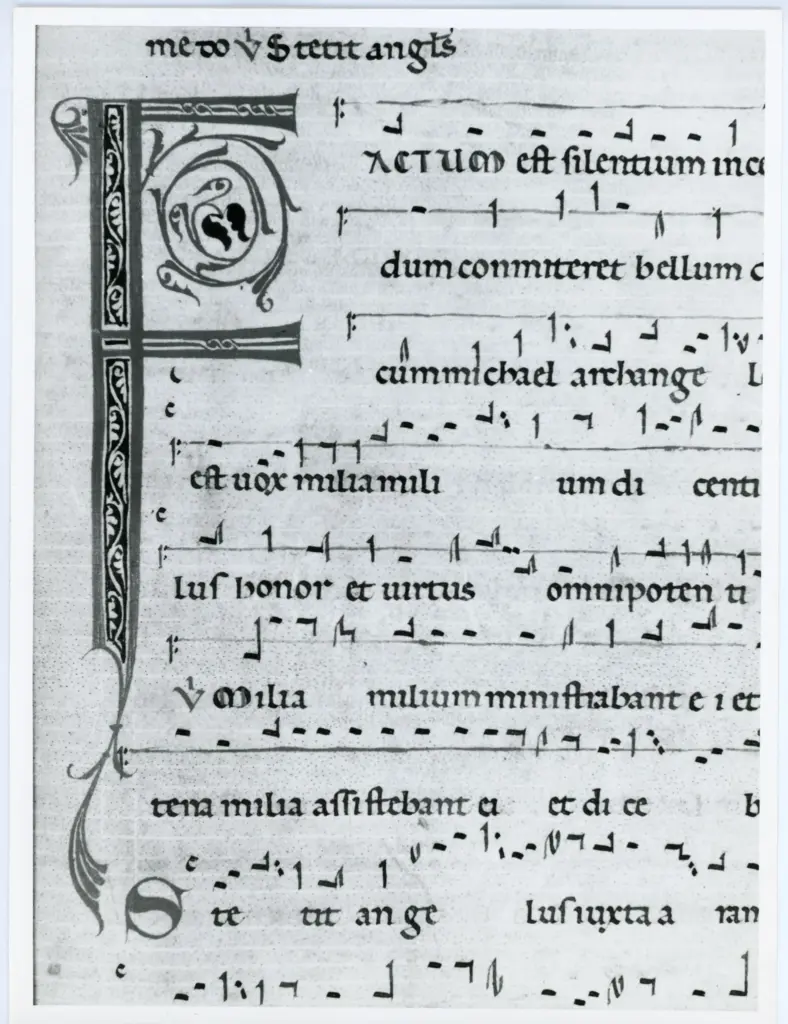 me do V Stetit angls
FACTUM est silentium in ce
dum conmitteret bellum c
cum michael archange L
est uox milia mili um di centi
lus honor et uirtus omnipoten ti
V Milia milium ministrabant e i et
tena milia assistebant ei et di ce b
Ste tit an ge lus iuxta a ram